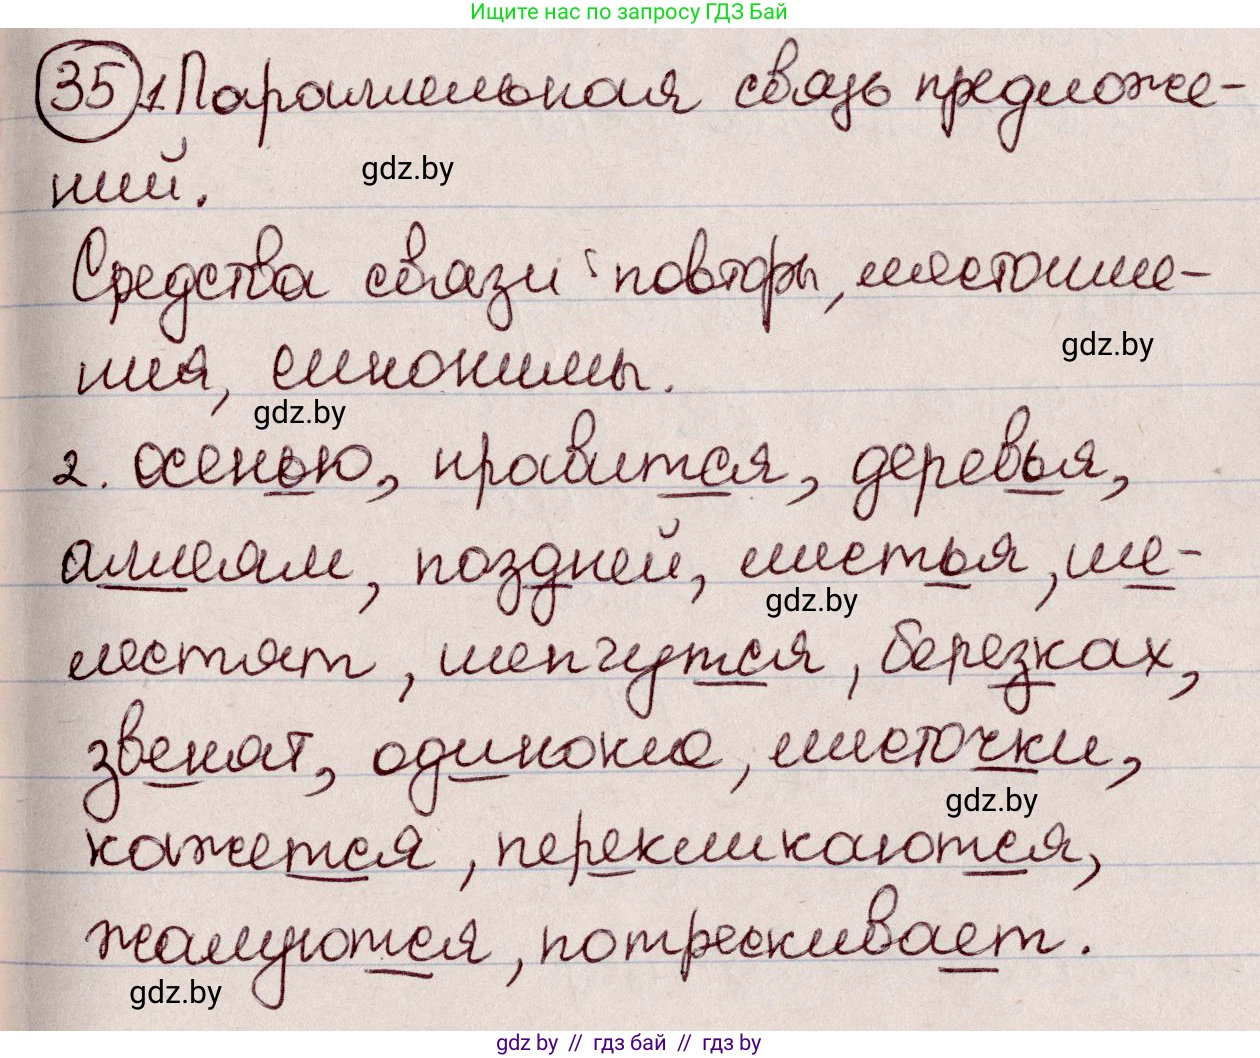 Ищите нас по запросу ГДЗ Бай
35 1. Параллельная связь предложе-
ний.
gdz.by
Средства связи: повторы, местоиме-
ния, синонимы.
gdz.by
gdz.by
2. осенью, нравится, деревья,
аллеям, поздней, листья, ше-
gdz.by
лестят, шепчутся, березках,
звенят, одиноко, листочки,
gdz.by
кажется, перекликаются,
жалуются, потрескивает.
gdz.by
gdz by // гдз бай // гдз by